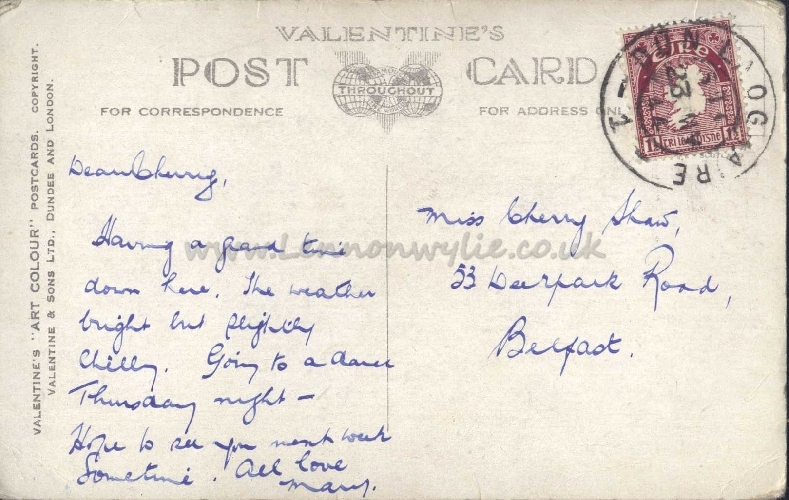 VALENTINE'S
POST CARD
THROUGHOUT
FOR CORRESPONDENCE
FOR ADDRESS ONL
VALENTINE'S "ART COLOUR" POSTCARDS. COPYRIGHT.
VALENTINE & SONS LTD., DUNDEE AND LONDON.
DUN LAOGAIRE
ÉIRE
www.Lennonwylie.co.uk
Dear Cherry,
Having a grand time
down here. The weather
bright but slightly
chilly. Going to a dance
Thursday night –
Hope to see you next week
Sometime. All love
Mary.
Miss Cherry Shaw,
53 Deerpark Road,
Belfast.